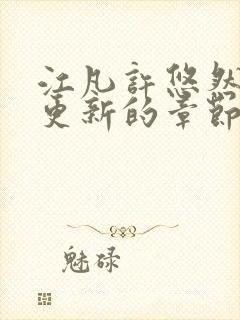 江凡許悠然
更新的章節
魅碌